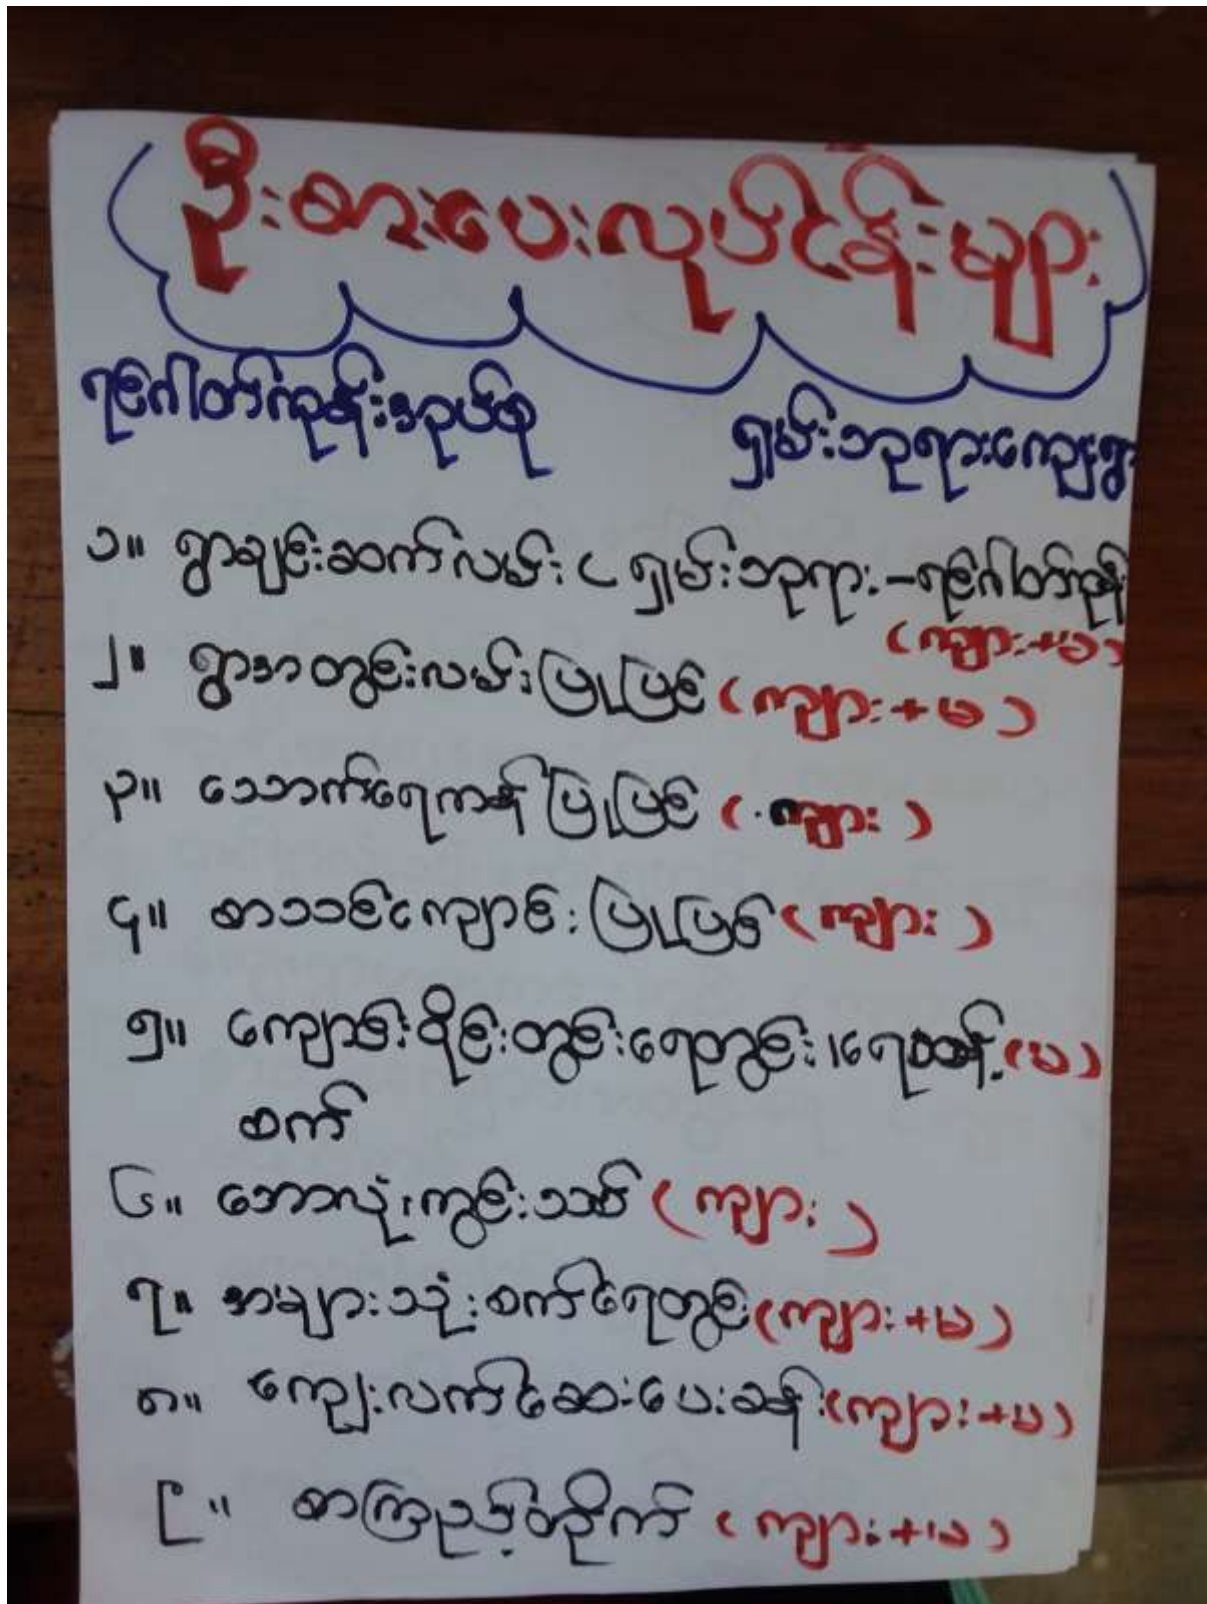 ဦးစားပေးလုပ်ငန်းများ
ရင်္ဂါတ်ကုန်းအုပ်စု ရှမ်းဘုရားကျေးရွာ
၁။ ရွာချင်းဆက်လမ်း ( ရှမ်းဘုရား - ရင်္ဂါတ်ကုန်း
(ကျား+မ)
၂။ ရွာအတွင်းလမ်းပြုပြင် (ကျား+မ)
၃။ သောက်ရေကန် ပြုပြင် (ကျား)
၄။ စာသင်ကျောင်း ပြုပြင် (ကျား)
၅။ ကျောင်းဝိုင်းတွင်းရေတွင်း၊ရေတွန့် (မ)
စက်
၆။ ဘောလုံးကွင်းသစ် (ကျား)
၇။ အများသုံးစက်ရေတွင်း (ကျား+မ)
၈။ ကျေးလက်ဆေးပေးခန်း (ကျား+မ)
၉။ စာကြည့်တိုက် (ကျား+မ)